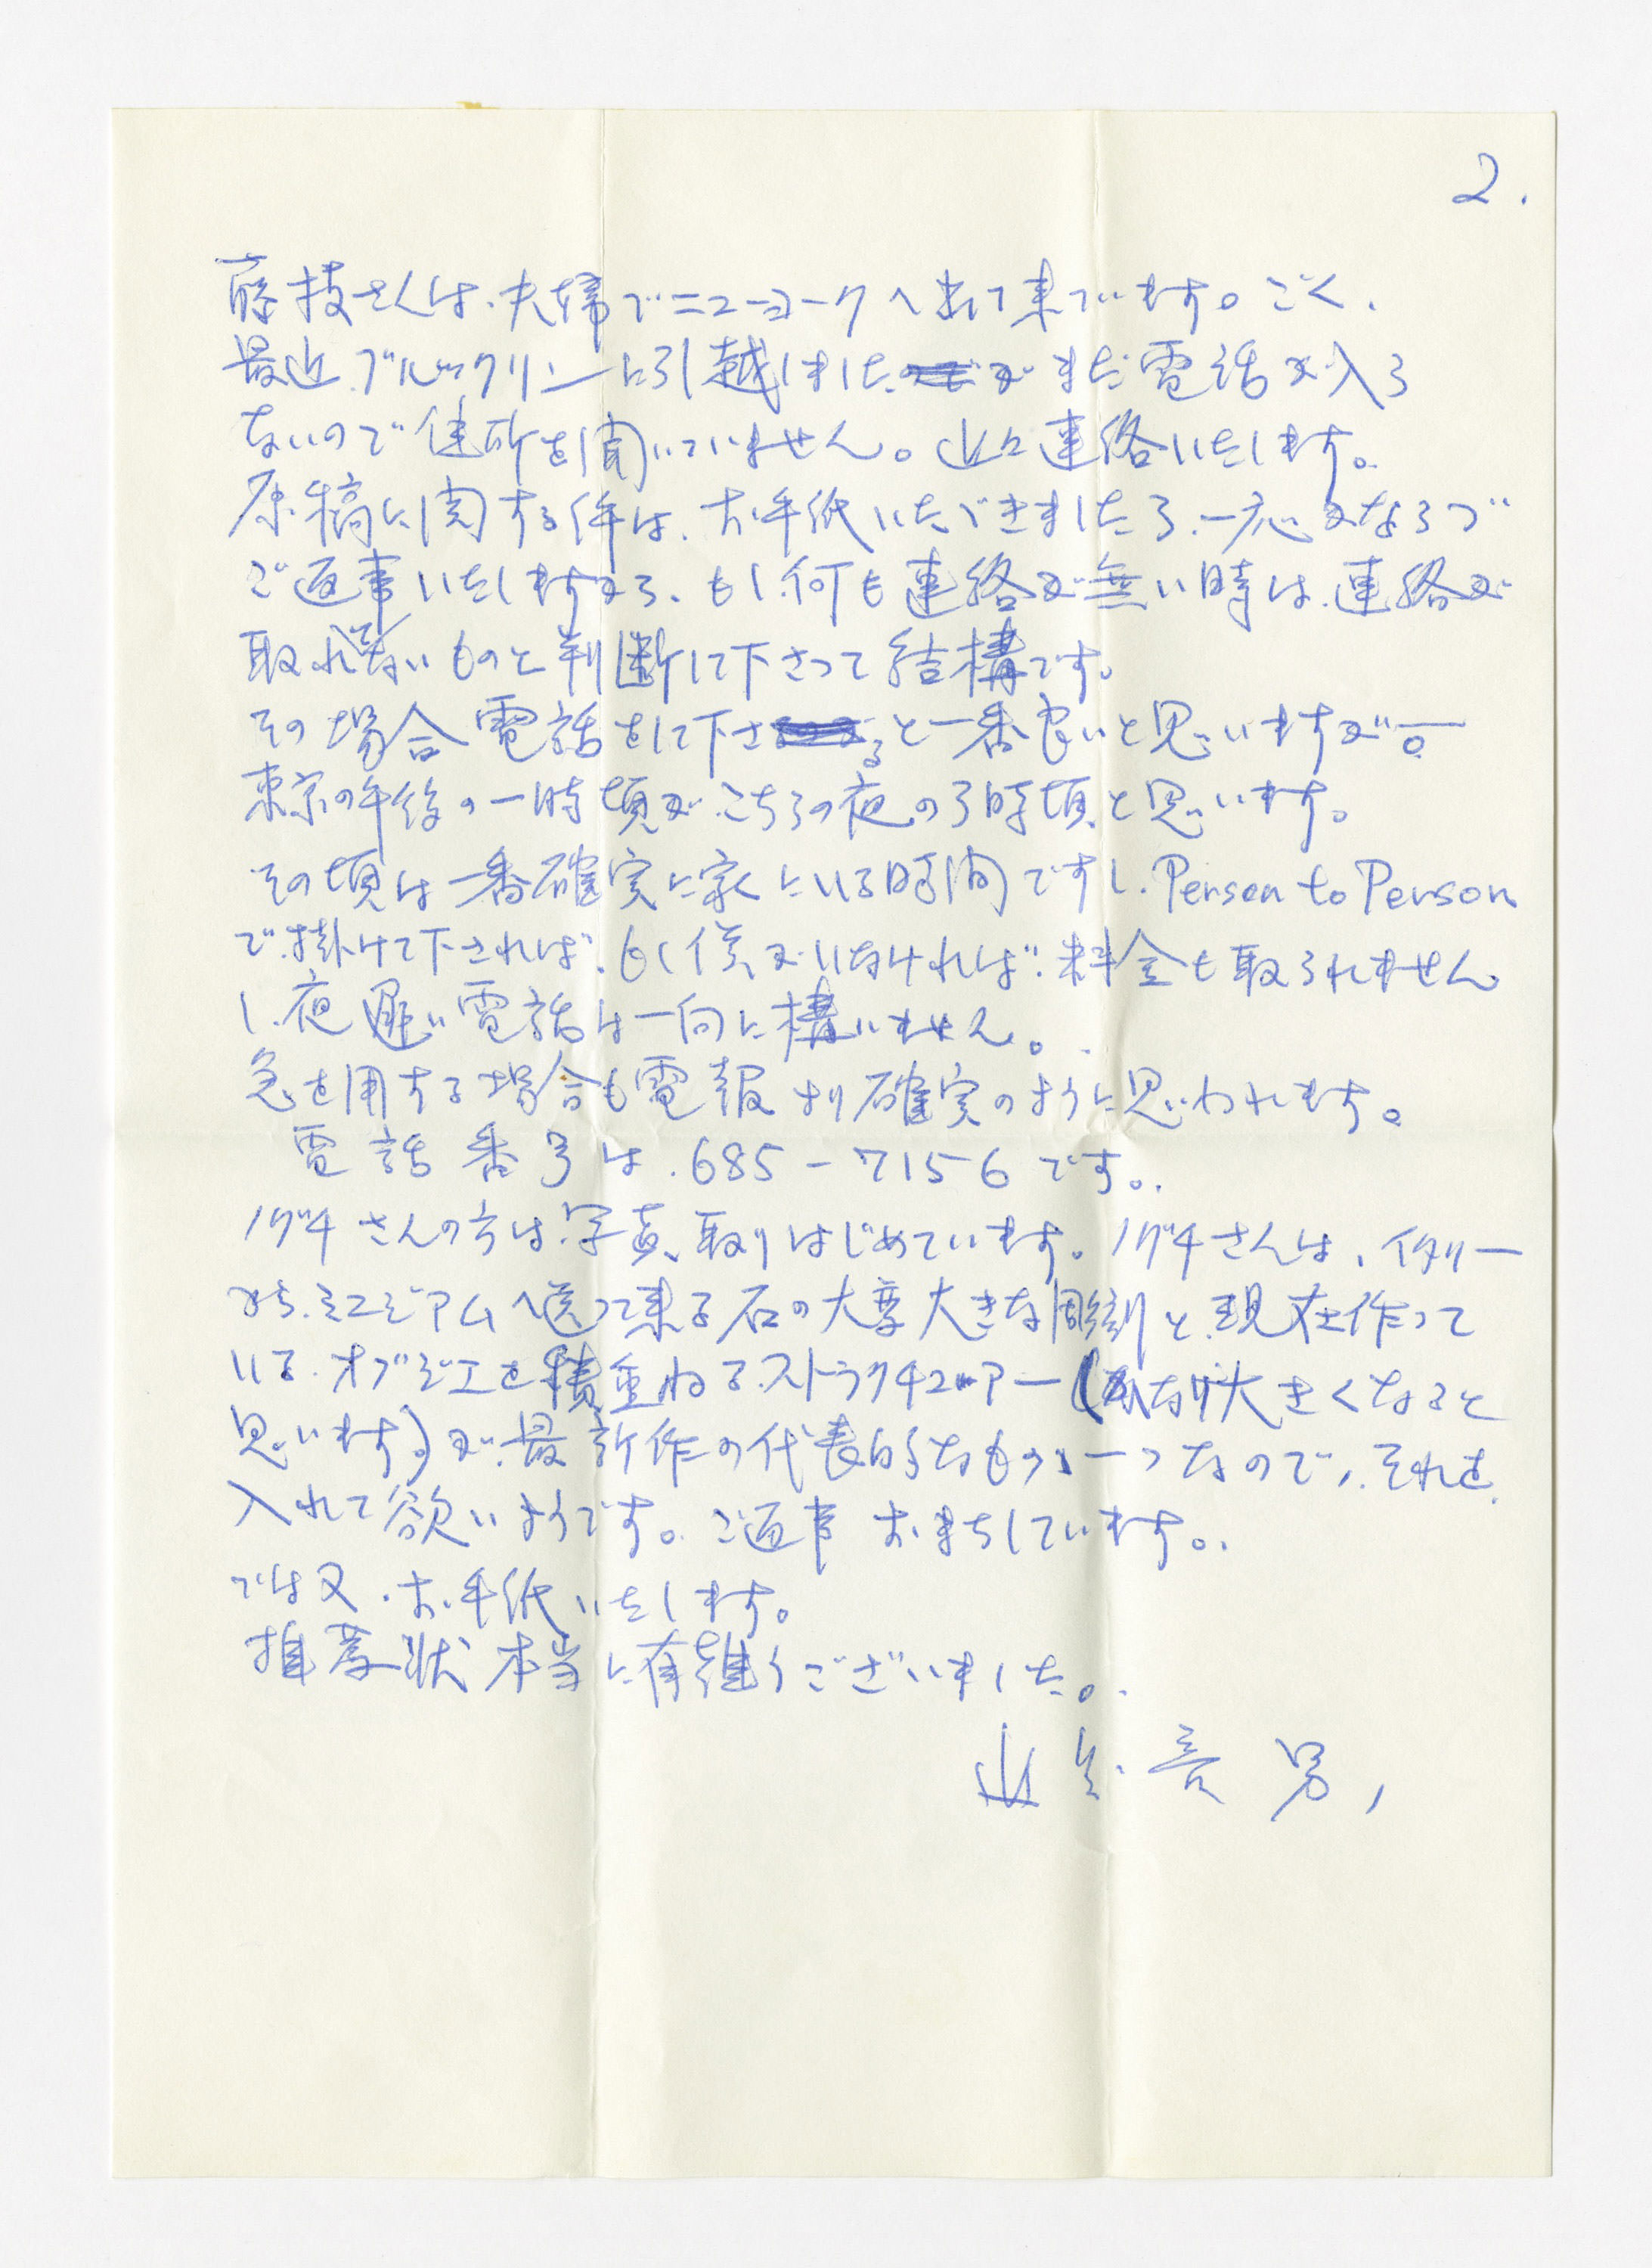 2.
藤枝さんは、夫婦でニューヨークへ出て来ています。ごく、
最近、ブルックリンに引越しましたがまだ電話が入ら
ないので住所を聞いていません。近々連絡いたします。
原稿に関する件は、お手紙いただきましたら、一応かならづ
ご返事いたしますから、もし何も連絡が無い時は、連絡が
取れないものと判断して下さって結構です。
その場合電話をして下さると一番良いと思いますが―。
東京の午後の一時頃が、こちらの夜の
時頃と思います。
その頃は一番確実に家にいる時間ですし、Person to Person
で掛けて下されば、もし僕がいなければ、料金も取られません
し、夜遅い電話は一向に構いません。
急を用する場合も電報より確実のように思われます。
電話番号は、685-7156です。
ノグチさんの方は、写真、取りはじめています。ノグチさんは、イタリー
から、ミュジアムへ送って来る石の大変大きな彫刻と、現在作って
いる、オブジエを積重ねる、ストラクチュアー(かなり大きくなると
思います。)が、最新作の代表的なものの一つなので、それを、
入れて欲いようです。ご返事おまちしています。
では又、お手紙いたします。
推薦状本当に有難うございました。
男